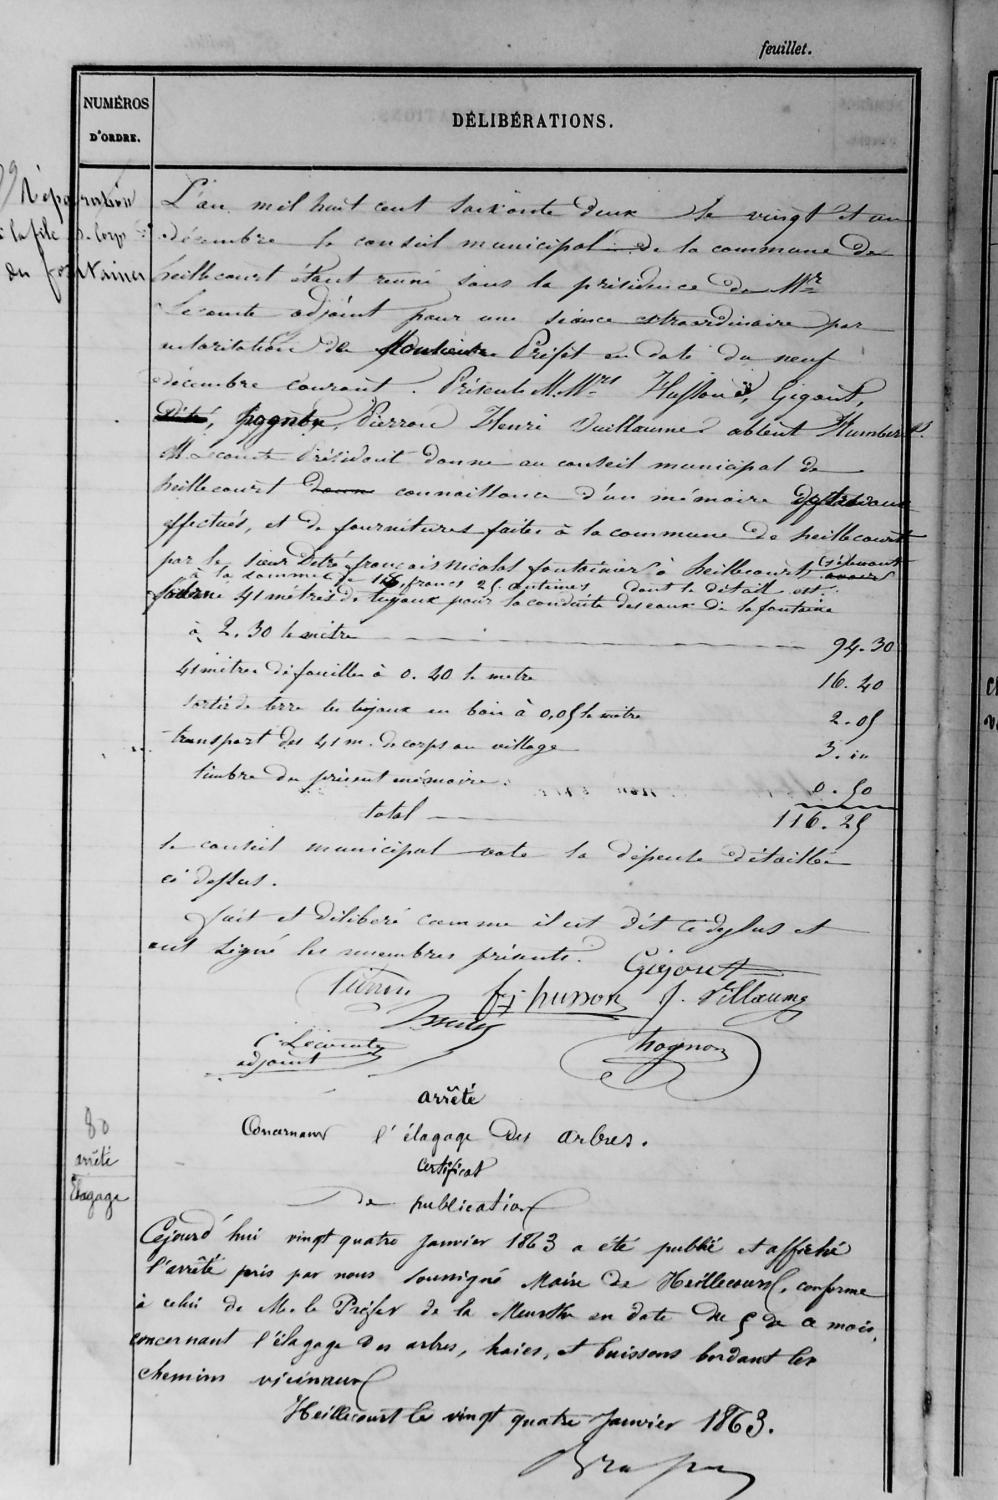 feuillet.
NUMÉROS
D'ORDRE.
DÉLIBÉRATIONS.
79 Réparation
à la file de Corps
des fontaines
L'an mil huit cent soixante deux le vingt et un
décembre le conseil municipal de la commune de
heillecourt étant reuni sous la présidence de Mr
Lecomte adjoint pour une séance extraordinaire par
autorisation de Monsieur le Préfet en date du neuf
décembre courant. Présents M.Mrs Husson, Gigout,
Détré, hognon, Pierron Henri Vuillaume absent Humbert.
M. Lecomte Président donne au conseil municipal de
heillecourt donne connaissance d'un mémoire de travaux
effectués, et de fournitures faites à la commune de heillecourt
par le sieur Détré françois nicolas fontainier à heillecourt, s'élevant
à la somme de 116, francs 25 centimes dont le détail est:
fourni 41 mètres de tuyaux pour la conduite des eaux de la fontaine
à 2.30 le mètre 94.30
41 mètres de fouilles à 0.40 le metre 16.40
sortir de terre les tuyaux en bois à 0,05 le mètre 2.05
transport des 41 m. de corps au village 3.00
timbre du présent mémoire. 0.50
total 116.25
le conseil municipal vote la dépense détaillée
ci dessus.
fait et délibéré comme il est dit ci dessus et
ont signé les membres présents.
Gigout
Pierron
husson J. Villaume
C. Lecomte
adjoint
hognon
80
arrêté
Elagage
arrêté
Concernant l'élagage des arbres.
Certificat
de publication
Cejourd'hui vingt quatre Janvier 1863 a été publié et affiché
l'arrêté pris par nous soussigné Maire de Heillecourt, conforme
à celui de M. le Préfet de la Meurthe en date du 5 de ce mois,
concernant l'élagage des arbres, haies, et buissons bordant les
chemins vicinaux
Heillecourt le vingt quatre Janvier 1863.